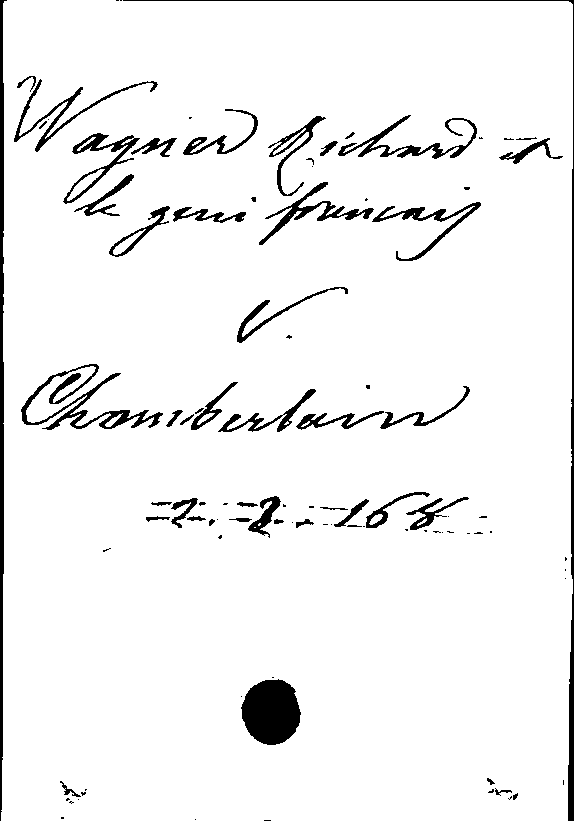 Wagner Richard et
le geni francais
V.
Chamberlain
=2. =2. 168